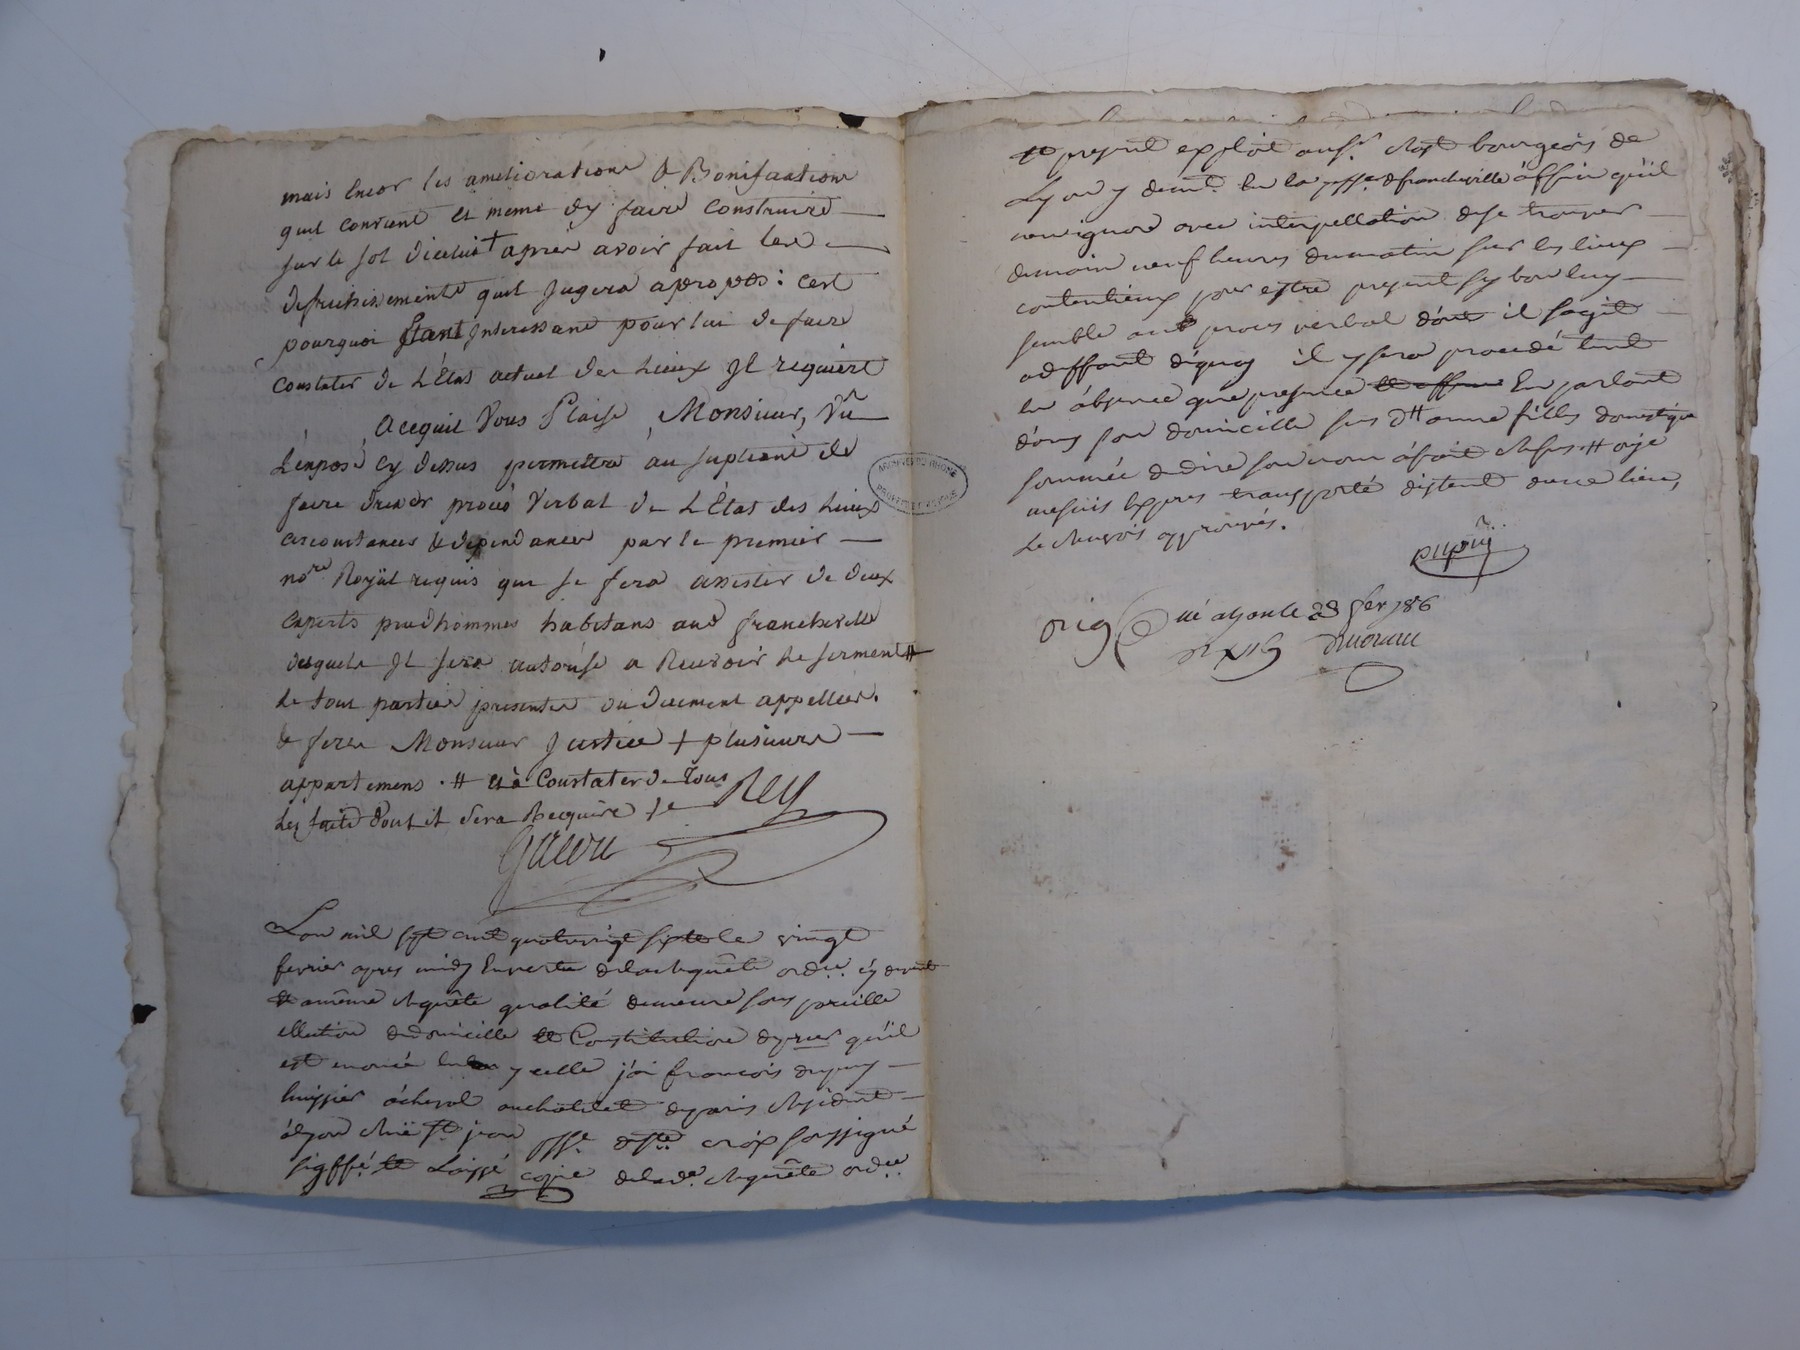 mais encor les ameliorations & Bonifications
quil convient et meme dy faire construire
sur le sol dicelui + apres avoir fait les
defrichisements quil jugera apropos : cest
pourquoi Etant Interessant pour lui de faire
constater de L'Etat actuel des Lieux Il requiert
Acequil Vous Plaise, Monsieur, Vû
L'exposé Cy dessus permettre au supliant de
faire dresser procès Verbal de L'Etat des Lieux
circonstances & dependances par le premier
nore Royal requis qui se fera assister de deux
experts prudhommes habitans aud francheville
desquels Il sera autorisé a Recevoir le serment #
Le tout parties presentes ou duement appellées.
& ferez Monsieur Justice + plusieurs
appartemens . # et à Constater de Tous
Les faits dont il sera Recquire /.
Rey
Lan mil sept cent quatrevingt six le vingt
fevrier apres midy En vertu de la Requête ordce. cy devant
et a même Requête qualité demeure sous pareille
ellection de domicille et Constitution de qu'il
est enoncé en y celle j'ai francois dupuy
huissier àcheval au châtelet de paris Residant
à Lyon Ruë st. jean psse. ste. croix soussigné
sigffié. et Laissé copie de lade. Requête ordce.
et present exploit au sr. Rast bourgeois de
Lyon y demt. en la psse. de francheville àffin qu'il
nen ignore avec interpellation de se trouver
demain neuf heures du matin sur les lieux
contentieux pour estre present sy bon luy
semble au procès verbal dont il sagit
a deffaut dequoy il y sera procedé tant
en àbsence que presence En parlant
dans son domicille à une fille domestique
sommée de dire son nom à fait Refus # oije
me suis Expres transporté distant d'une lieue,
Le Renvois approuvés.
Dupuy